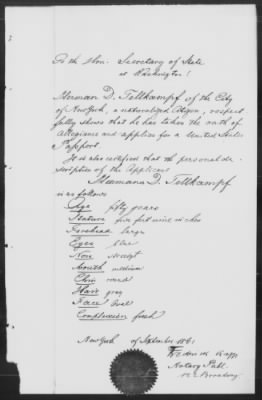 To the Hon. Secretary of State
at Washington!
Herman D. Tellkampf of the City
of New York, a naturalized Citizen, respect
fully shows that he has taken the oath of
Allegiance and applies for a United States
Passport.
It is also certified that the personal de-
scription of the Applicant
Hermann D. Tellkampf
is as follows
Age fifty years
Stature five feet nine inches
Forehead large
Eyes blue
Nose straight
Mouth medium
Chin round
Hair gray
Face oval
Complexion fresh
New York of September 1861
Notary Publ.
Broadway